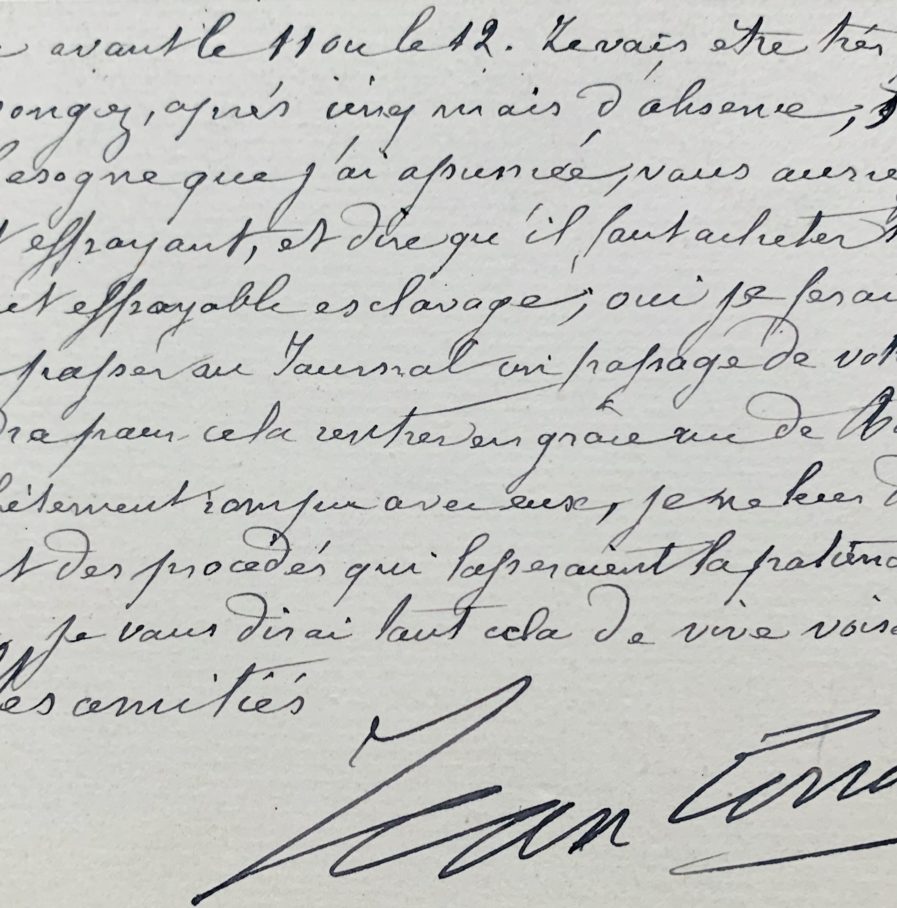 avant le 11 ou le 12. Je vais être très
songez, après cinq mois d'absence,
besogne que j'ai assumée, vous
effrayant, et dire qu'il faut acheter
effroyable esclavage; oui je ferai
passer au Journal un passage de
pour cela rentrer en grâce de
rompu avec eux, je ne leur
des procédés qui lasseraient la
je vous dirai tout cela de vive voix
amitiés
Jean